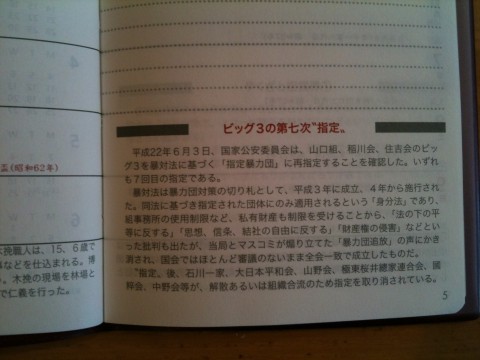 ビッグ3の第七次〝指定〟
平成22年6月3日、国家公安委員会は、山口組、稲川会、住吉会のビッ
グ3を暴対法に基づく「指定暴力団」に再指定することを確認した。いずれ
も7回目の指定である。
暴対法は暴力団対策の切り札として、平成3年に成立、4年から施行され
た。同法に基づき指定された団体にのみ適用されるという「身分法」であり、
組事務所の使用制限など、私有財産も制限を受けることから、「法の下の平
等に反する」「思想、信条、結社の自由に反する」「財産権の侵害」などとい
った批判も出たが、当局とマスコミが煽り立てた「暴力団追放」の声にかき
消され、国会ではほとんど審議のないまま全会一致で成立したものだ。
〝指定〟後、石川一家、大日本平和会、山野会、極東桜井總家連合会、國
粹会、中野会等が、解散あるいは組織合流のため指定を取り消されている。
5
盃(昭和62年)
木挽職人は、15、6歳で
事などを仕込まれる。博
。木挽の現場を林場と
で仁義を行った。
4
5
6